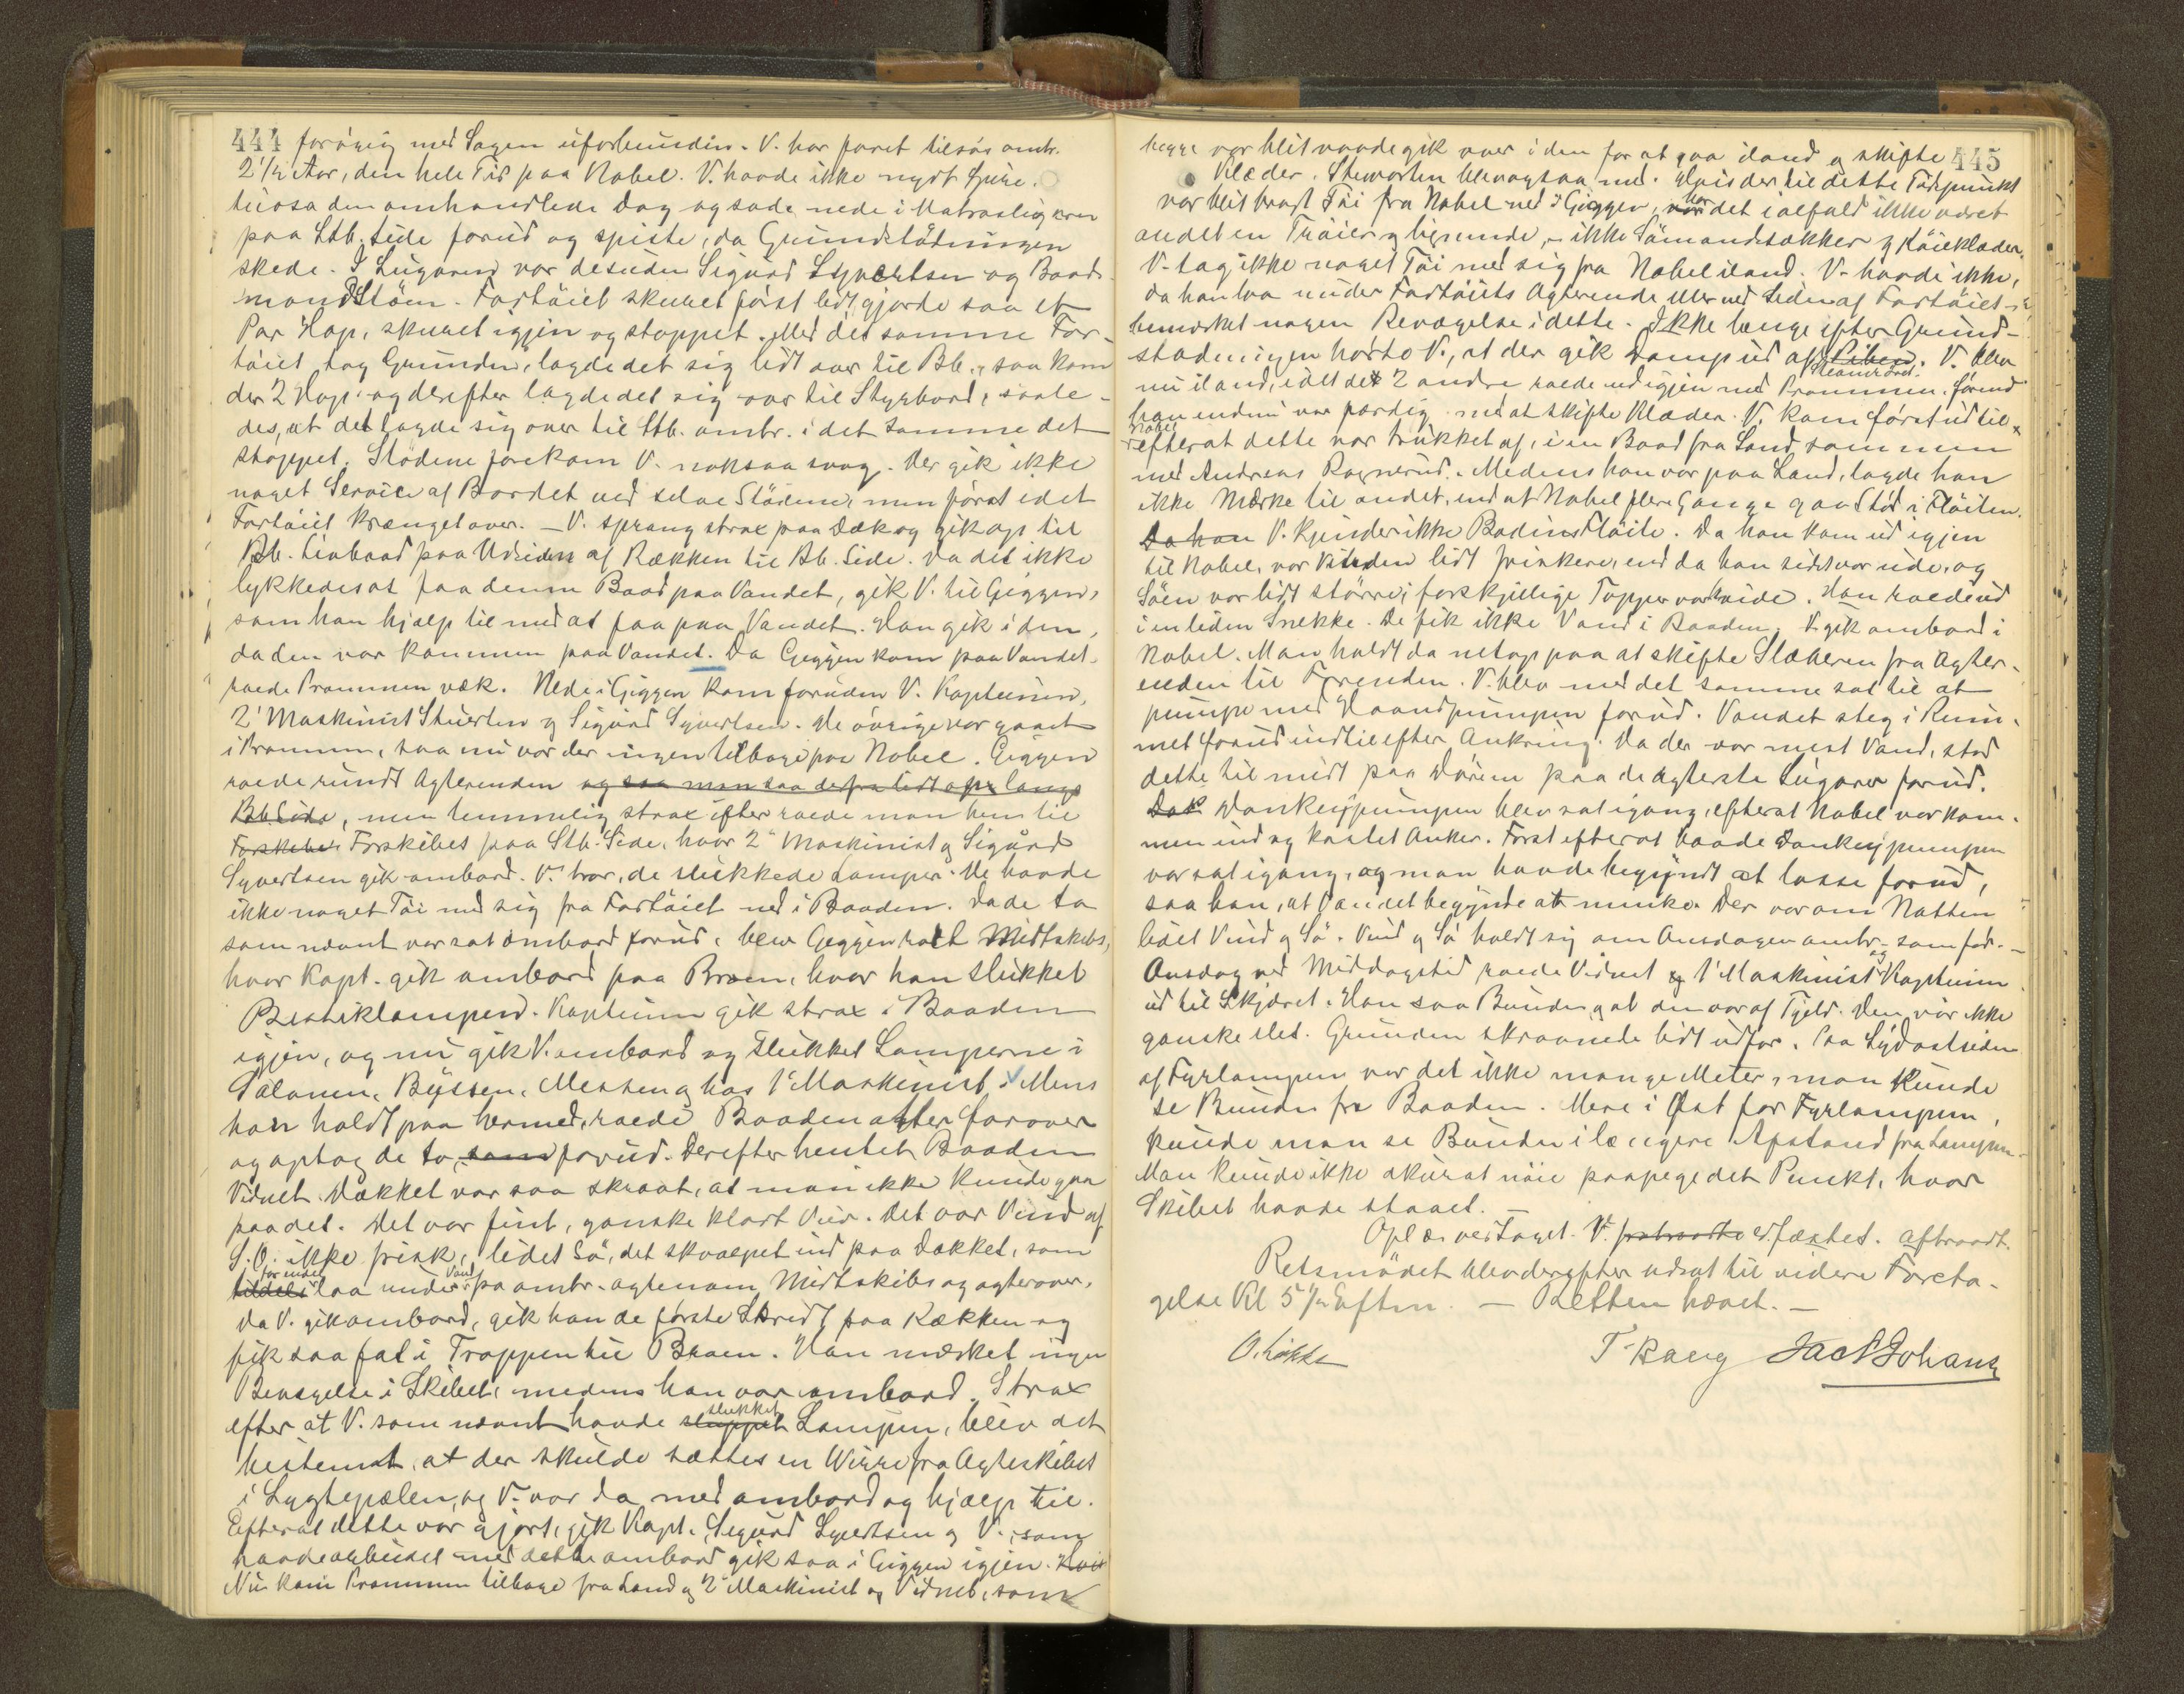 444 forøvrig med Sagen uforbunden. V. har faret tilsøs ombr.
2 1/2 Aar, den hele Tid paa Nobel. V. havde ikke nydt Spiri-
tuosa den omhandlede Dag og sad nede i Matroslugaren
paa Stb. Side forud og spiste, da Grundstødningen
skede. I Lugaren var desuden Sigurd Syvertsen og Baads-
mand Støm. Fartøiet skuret først lidt, gjorde saa et
Par Hop, skuret igjen og stoppet. Med det samme Far-
tøiet tog Grunden, lagde det sig lidt over til Bb., saa kom
der 2 Hop og derefter lagde det sig over til Styrbord, saale-
des, at det lagde sig over til Stb. ombr. i det samme det
stoppet. Stødene forekom V. noksaa svag. Der gik ikke
noget Service af Bordet ved selve Stødene, men først idet
Fartøiet krænget over. — V. sprang strax paa Dæk og gik op til
Bb. Livbaad paa Udsiden af Rækken til Bb. Side. Da det ikke
lykkedes at faa denne Baad paa Vandet, gik V. til Giggen,
som han hjalp til med at faa paa Vandet. Han gik i den,
da den var kommen paa Vandet. Da Giggen kom paa Vandet
roede Prammen væk. Nede i Giggen kom foruden V. Kapteinen,
2' Maskinist Stuerten og Sigurd Syvertsen. De øvrige var gaaet
i Prammen, saa nu var der ingen tilbage paa Nobel. Giggen
roede rundt Agterenden og saa man saa derfra lidt op langs
Bb Side, men temmelig strax efter roede man hen til
Forskibet Forskibet paa Stb. Side, hvor 2' Maskinist og Sigurd
Syvertsen gik ombord. V. tror, de slukkede Lamper. De havde
ikke noget Tøi med sig fra Fartøiet ned i Baaden. Da de to
som nævnt var sat ombord forud, blev Giggen roet Midtskibs,
hvor Kapt. gik ombord paa Broen, hvor han slukket
Bestiklampen. Kapteinen gik strax i Baaden
igjen, og nu gik V. ombord og slukket Lamperne i
Salonen, Byssen, Messen og hos 1' Maskinist. Mens
han holdt paa hermed, roede Baaden atter forover
og optog de to, som forud. Derefter hentet Baaden
Vidnet. Dækket var saa skraat, at man ikke kunde gaa
paa det. Det var fint, ganske klart Veir. Det var Vind af
S.O. ikke frisk, lidet Sø, det skvalpet ind paa Dækket, som
for endel Vand
tildels laa under paa ombr. agtenom Midtskibs og agterover.
Da V. gik ombord, gik han de første Skridt paa Rækken og
fik saa fat i Trappen til Broen. Han mærket ingen
Bevægelse i Skibet, medens han var ombord. Strax
slukket
efter at V. som nævnt havde sluppet Lampen, blev det
bestemt, at der skulde sættes en Wirre fra Agterskibet
i Lygtepælen, og V. var da med ombord og hjalp til.
Efter at dette var gjort, gik Kapt. Sigurd Syvertsen og V., som
havde arbeidet med dette ombord gik saa i Giggen igjen.
Nu kom Prammen tilbage fra Land og 2' Maskinist og Vidnet, som
begge var blit vaade gik over i den for at gaa iland og skifte 445
Klæder. Stewarten blev ogsaa med. Hvis der til dette Tidspunkt
har
var blit bragt Tøi fra Nobel ned i Giggen, var det ialfald ikke været
andet en Trøier og lignende, — ikke Sømandssækker og Køieklæder.
V. tog ikke noget Tøi med sig fra Nobel iland. V. havde ikke,
da han laa under Fartøiets Agterende eller ved Siden af Fartøiet
bemærket nogen Bevægelse i dette. Ikke længe efter Grund-
stødningen hørte V., at der gik Damp ud af Piben. V. blev
nu iland, idet de 2 andre roede ud igjen med Prammen, førend
han endnu var færdig med at skifte Klæder. V. kom først ud til
Nobel
efterat dette var trukket af, i en Baad fra Land sammen
med Andreas Ragnerud. Medens han var paa Land, lagde han
ikke Mærke til andet, end at Nobel flere Gange gav Stød i Fløiten.
Da han V. kjender ikke Bodins Fløite. Da han kom ud igjen
til Nobel, var Vinden lidt friskere, end da han sidst var ude, og
Søen var lidt større, forskjellige Topper var hvide. Han roede ud
i en liden Snekke. De fik ikke Vand i Baaden. V. gik ombord i
Nobel. Man holdt da netop paa at skifte Slæberen fra Agter-
enden til Forenden. V. blev med det samme sat til at
pumpe med Haandpumpen forud. Vandet steg i Rum-
met forud indtil efter Ankring. Da der var mest Vand, stod
dette til midt paa Døren paa de agterste Lugarer forud.
Dankeypumpen blev sat igang, efterat Nobel var kom-
men ind og kastet Anker. Først efterat baade Dankeypumpen
var sat igang, og man havde begyndt at losse forud,
saa han, at Vandet begyndte at minke. Der var om Natten
lidet Vind og Sø. Vind og Sø holdt sig om Onsdagen ombr. som før. —
og
Onsdag ved Middagstid roede Vidnet og 1' Maskinist Kapteinen
ud til Skjæret. Han saa Bunden, at den var af Fjeld. Den var ikke
ganske slet. Grunden skraanede lidt udfor. Paa Sydostsiden
af Fyrlampen var det ikke mange Meter, man kunde
se Bunden fra Baaden. Mere i Øst for Fyrlampen,
kunde man se Bunden i længere Afstand fra Lampen.
Man kunde ikke akurat nøie paapege det Punkt, hvor
Skibet havde staaet. —
Oplæst vedtaget. V. fratraadte edfæstet. aftraadt.
Retsmødet blev derefter udsat til videre Foreta-
gelse Kl 5 1/2 Eftm. — Retten hævet. —
O. Løkke T. Bang Jac N Johans